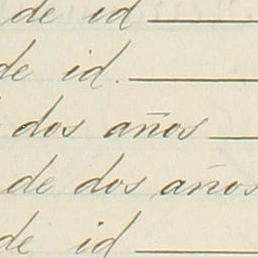 de id
de id.
dos años
de dos años
de id